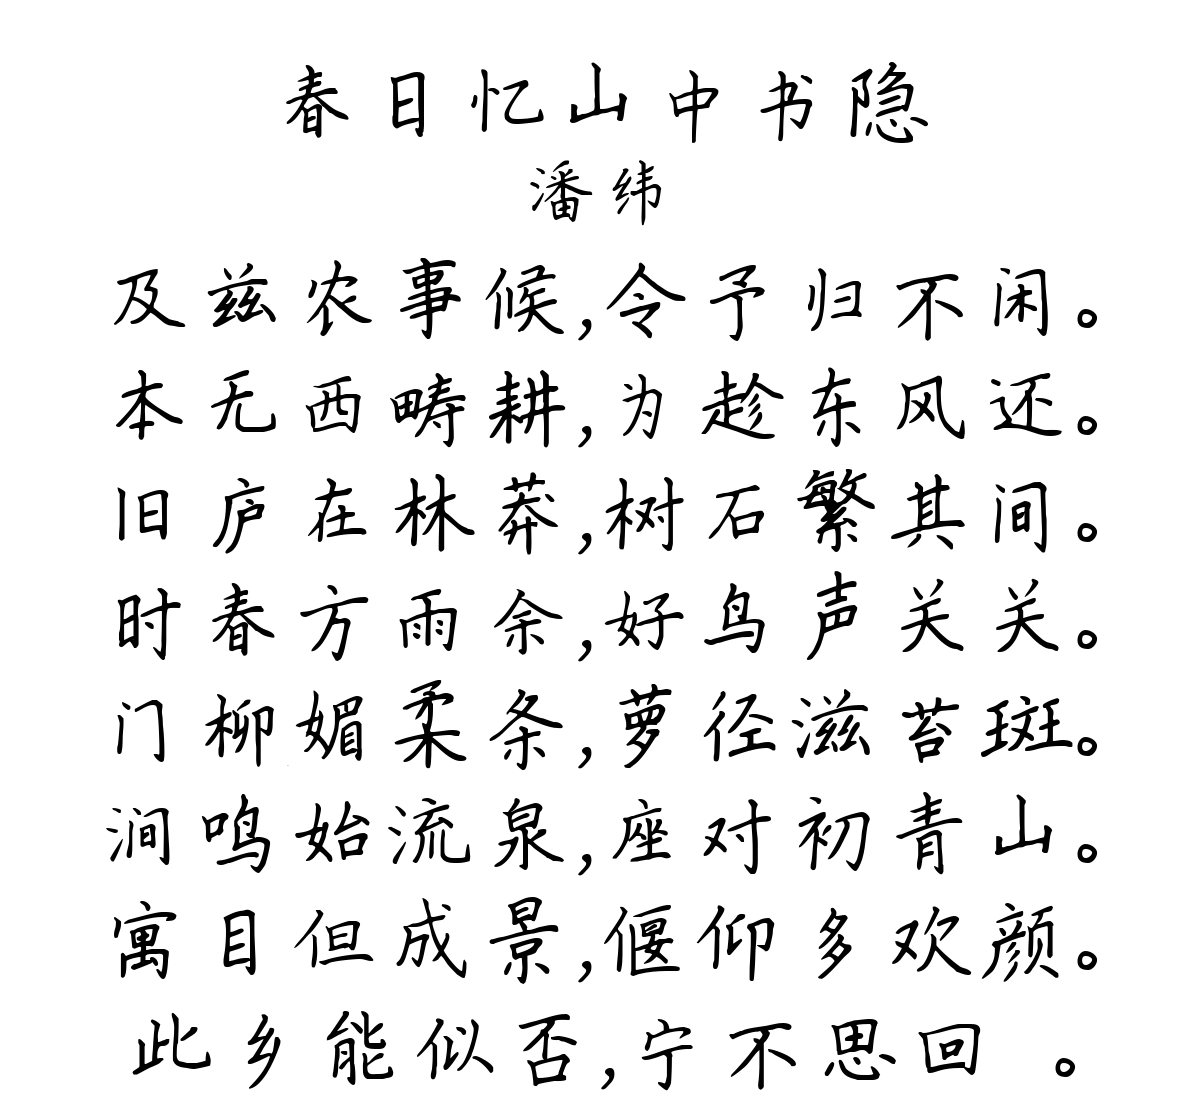 春日忆山中书隐
潘纬
及兹农事候,令予归不闲。
本无西畴耕,为趁东风还。
旧庐在林莽,树石繁其间。
时春方雨余,好鸟声关关。
门柳媚柔条,萝径滋苔斑。
涧鸣始流泉,座对初青山。
寓目但成景,偃仰多欢颜。
此乡能似否,宁不思回 。